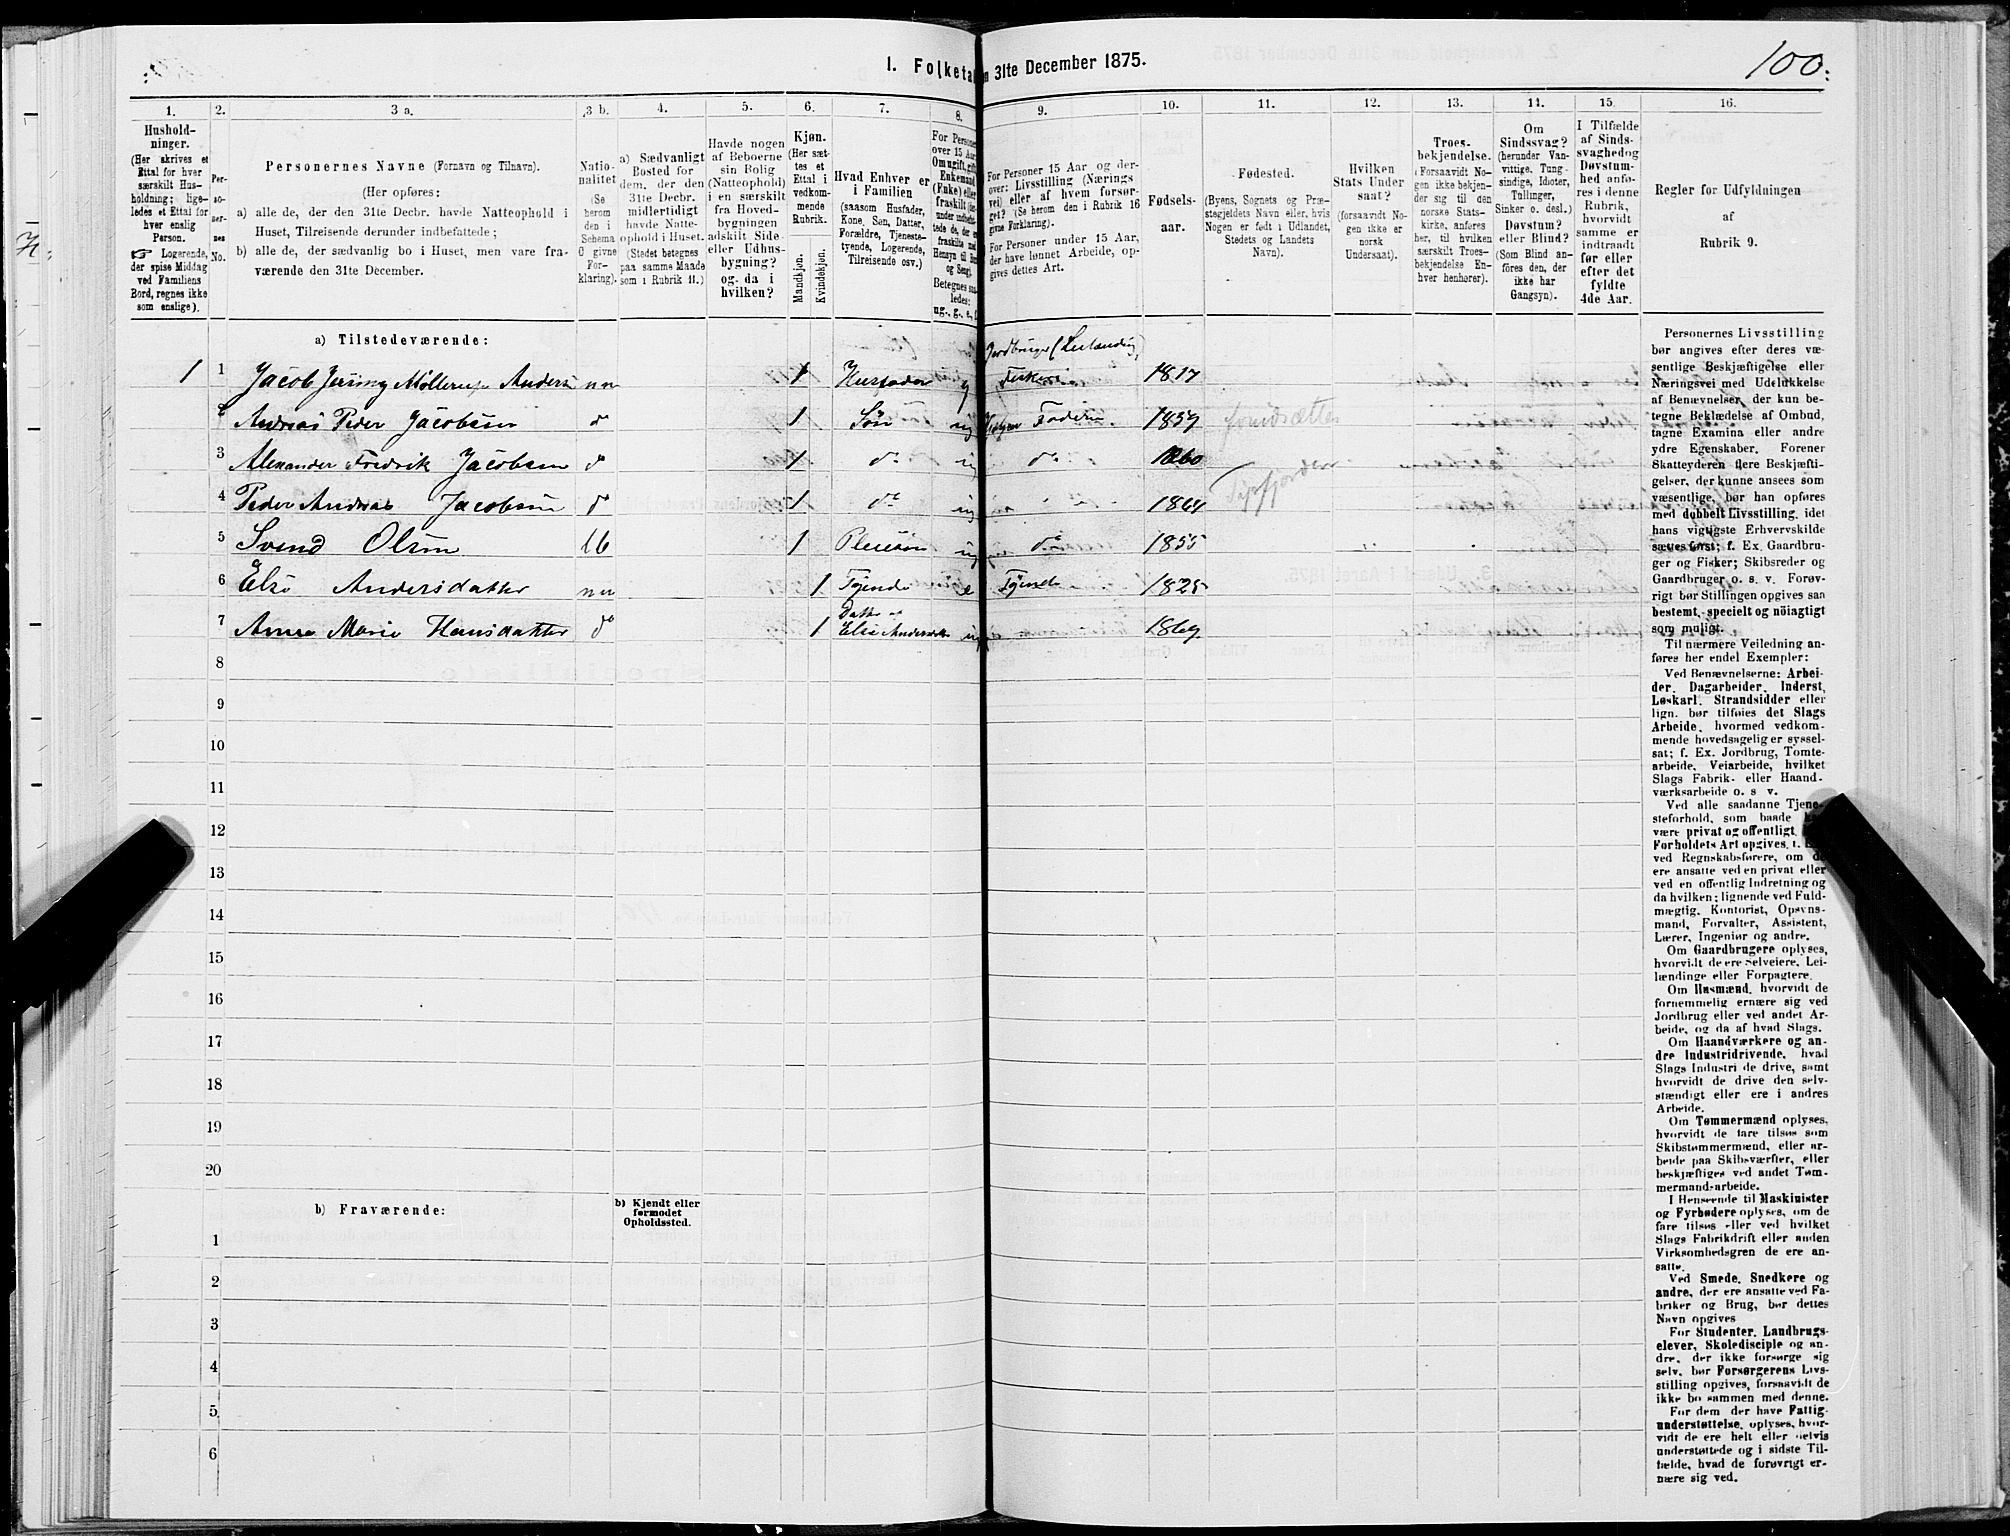 100.
I. Folketa n 31te December 1875.
1. 2. 3 a. 3 b. 4. 5. 6. 7. 8. 9. 10. 11. 12. 13. 14. 15. 16.
Husholdninger.
(Her skrives et
Ettal for hver
særskilt Husholdning; ligeledes et Ettal for
hver enslig
Person.
☞ Logerende,
der spise Middag
ved Familiens
Bord, regnes ikke
som enslige).
Personernes
No.
Personernes Navne (Fornavn og Tilnavn).
(Her opføres:
a) alle de, der den 31te Decbr. havde Natteophold i
Huset, Tilreisende derunder indbefattede;
b) alle de, der sædvanlig bo i Huset, men vare fraværende den 31te December.
Nationalitet
(Se
herom
den i
Schema
0 givne
Forklaring).
a) Sædvanligt
Bosted for
dem, der den
31te Decbr.
midlertidigt
havde Natteophold i Huset.
(Stedet betegnes
paa samme Maade
som i Rubrik 11.)
Havde nogen
af Beboerne
sin Bolig
(Natteophold)
i en særskilt
fra Hovedbygningen
adskilt Side-
eller Udhusbygning?
og da i
hvilken?
Kjøn.
(Her sættes et
Ettal i
vedkommende
Rubrik.
Mandkjøn.
Kvindekjøn.
Hvad Enhver er
i Familien
(saasom Husfader,
Kone, Søn, Datter,
Forældre, Tjenestetyende, Logerende,
Tilreisende osv.)
For Personer 15 Aar og derover: Livsstilling (Næringsvei) eller af hvem forsørget? (Se herom den i Rubrik 16
givne Forklaring).
For Personer under 15 Aar,
der have lønnet Arbeide, opgives dettes Art.
Fødselsaar.
Fødested.
(Byens, Sognets og Præstegjeldets Navn eller, hvis
Nogen er født i Udlandet,
Stedets og Landets
Navn).
Hvilken
Stats Undersaat?
(forsaavidt Nogen ikke er
norsk
Undersaat).
Troesbekjendelse.
(Forsaavidt Nogen ikke bekjender sig til den
norske Statskirke, anføres
her, til hvilken
særskilt Troesbekjendelse Enhver henhører).
Om
Sindssvag?
(herunder Vanvittige, Tungsindige, Idioter,
Tullinger,
Sinker o. desl.)
Døvstum?
eller Blind?
(Som Blind anføres den, der
ikke har
Gangsyn).
I Tilfælde
af Sindssvaghed og
Døvstumhed anføres i denne
Rubrik,
hvorvidt
samme er
indtraadt
før eller
efter det
fyldte
4de Aar.
Regler for Udfyldningen
af
Rubrik 9.
a) Tilstedeværende:
1 1 Jacob Møllerup Anders nn 1 Husfader 1817
2 Andreas Peder Jacobsen do 1 Søn ug Faderen 1859
3 Alexander Fredrik Jacobsen do 1 do ug do 1860
4 Peder Andreas Jacobsen do 1 do ug 1864
5 Svend Olsen 1 Pleiesøn ug do 1855
6 Else Andersdatter nn 1 Tjende e Tjende 1825
7 Anna Marie Hansdatter do 1 Datter af Else Andersdtr ug 1869
8
9
10
11
12
13
14
15
16
17
18
19
20
b) Fraværende:
b) Kjendt eller
formodet
Opholdssted.
1
2
3
4
5
6
Personernes Livsstilling
bør angives efter deres væsentlige Beskjæftigelse eller
Næringsvei med Udelukkelse
af Benævnelser, der kun betegne Beklædelse af Ombud,
tagne Examina eller andre
ydre Egenskaber. Forener
Skatteyderen flere Beskjæftigelser, der kunne ansees som
væsentlige, bør han opføres
med dobbelt Livsstilling, idet
hans vigtigste Erhvervskilde
sættes først; f. Ex. Gaardbruger og Fisker; Skibsreder og
Gaardbruger o. s. v. Forøvrigt bør Stillingen opgives saa
bestemt, specielt og nøiagtigt
som muligt.
Til nærmere Veiledning anføres her endel Exempler:
Ved Benævnelserne: Arbeider, Dagarbeider, Inderst,
Løskarl, Strandsidder eller
lign. bør tilføies det Slags
Arbeide, hvormed vedkommende hovedsagelig er sysselsat; f. Ex. Jordbrug, Tomtearbeide, Veiarbeide, hvilket
Slags Fabrik- eller Haandværksarbeide o. s v.
Ved alle saadanne Tjenesteforhold, som baade
være privat og offentligt,
Forholdets Art opgives,
ved Regnskabsførere, om de
ere ansatte ved en privat eller
ved en offentlig Indretning og
da hvilken; lignende ved Fuldmægtig, Kontorist, Opsynsmand, Forvalter, Assistent,
Lærer, Ingeniør og andre.
Om Gaardbrugere oplyses,
hvorvidt de ere Selveiere, Leilændinge eller Forpagtere.
Om Husmænd, hvorvidt de
fornemmelig ernære sig ved
Jordbrug eller ved andet Arbeide, og da af hvad Slags.
Om Haandværkere og andre Industridrivende, hvad
Slags Industri de drive, samt
hvorvidt de drive den selvstændigt eller ere i andres
Arbeide.
Om Tømmermænd oplyses,
hvorvidt de fare tilsøs som
Skibstømmermænd, eller arbeide paa Skibsværfter, eller
beskjæftiges ved andet Tømmermandsarbeide.
I Henseende til Maskinister
og Fyrbødere oplyses, om de
fare tilsøs eller ved hvilket
Slags Fabrikdrift eller anden
Virksomhedsgren de ere ansatte.
Ved Smede, Snedkere og
andre, der ere ansatte ved Fabriker og Brug, bør dettes
Navn opgives
For Studenter, Landbrugselever, Skoledisciple og andre, der ikke forsørge sig
selv, bør Forsørgerens Livsstilling opgives, forsaavidt de
ikke bo sammen med denne.
For dem der have Fattigunderstøttelse, oplyses, hvorvidt de ere helt eller delvis
understøttede og i sidste Tilfælde, hvad de forøvrigt ernære sig ved.